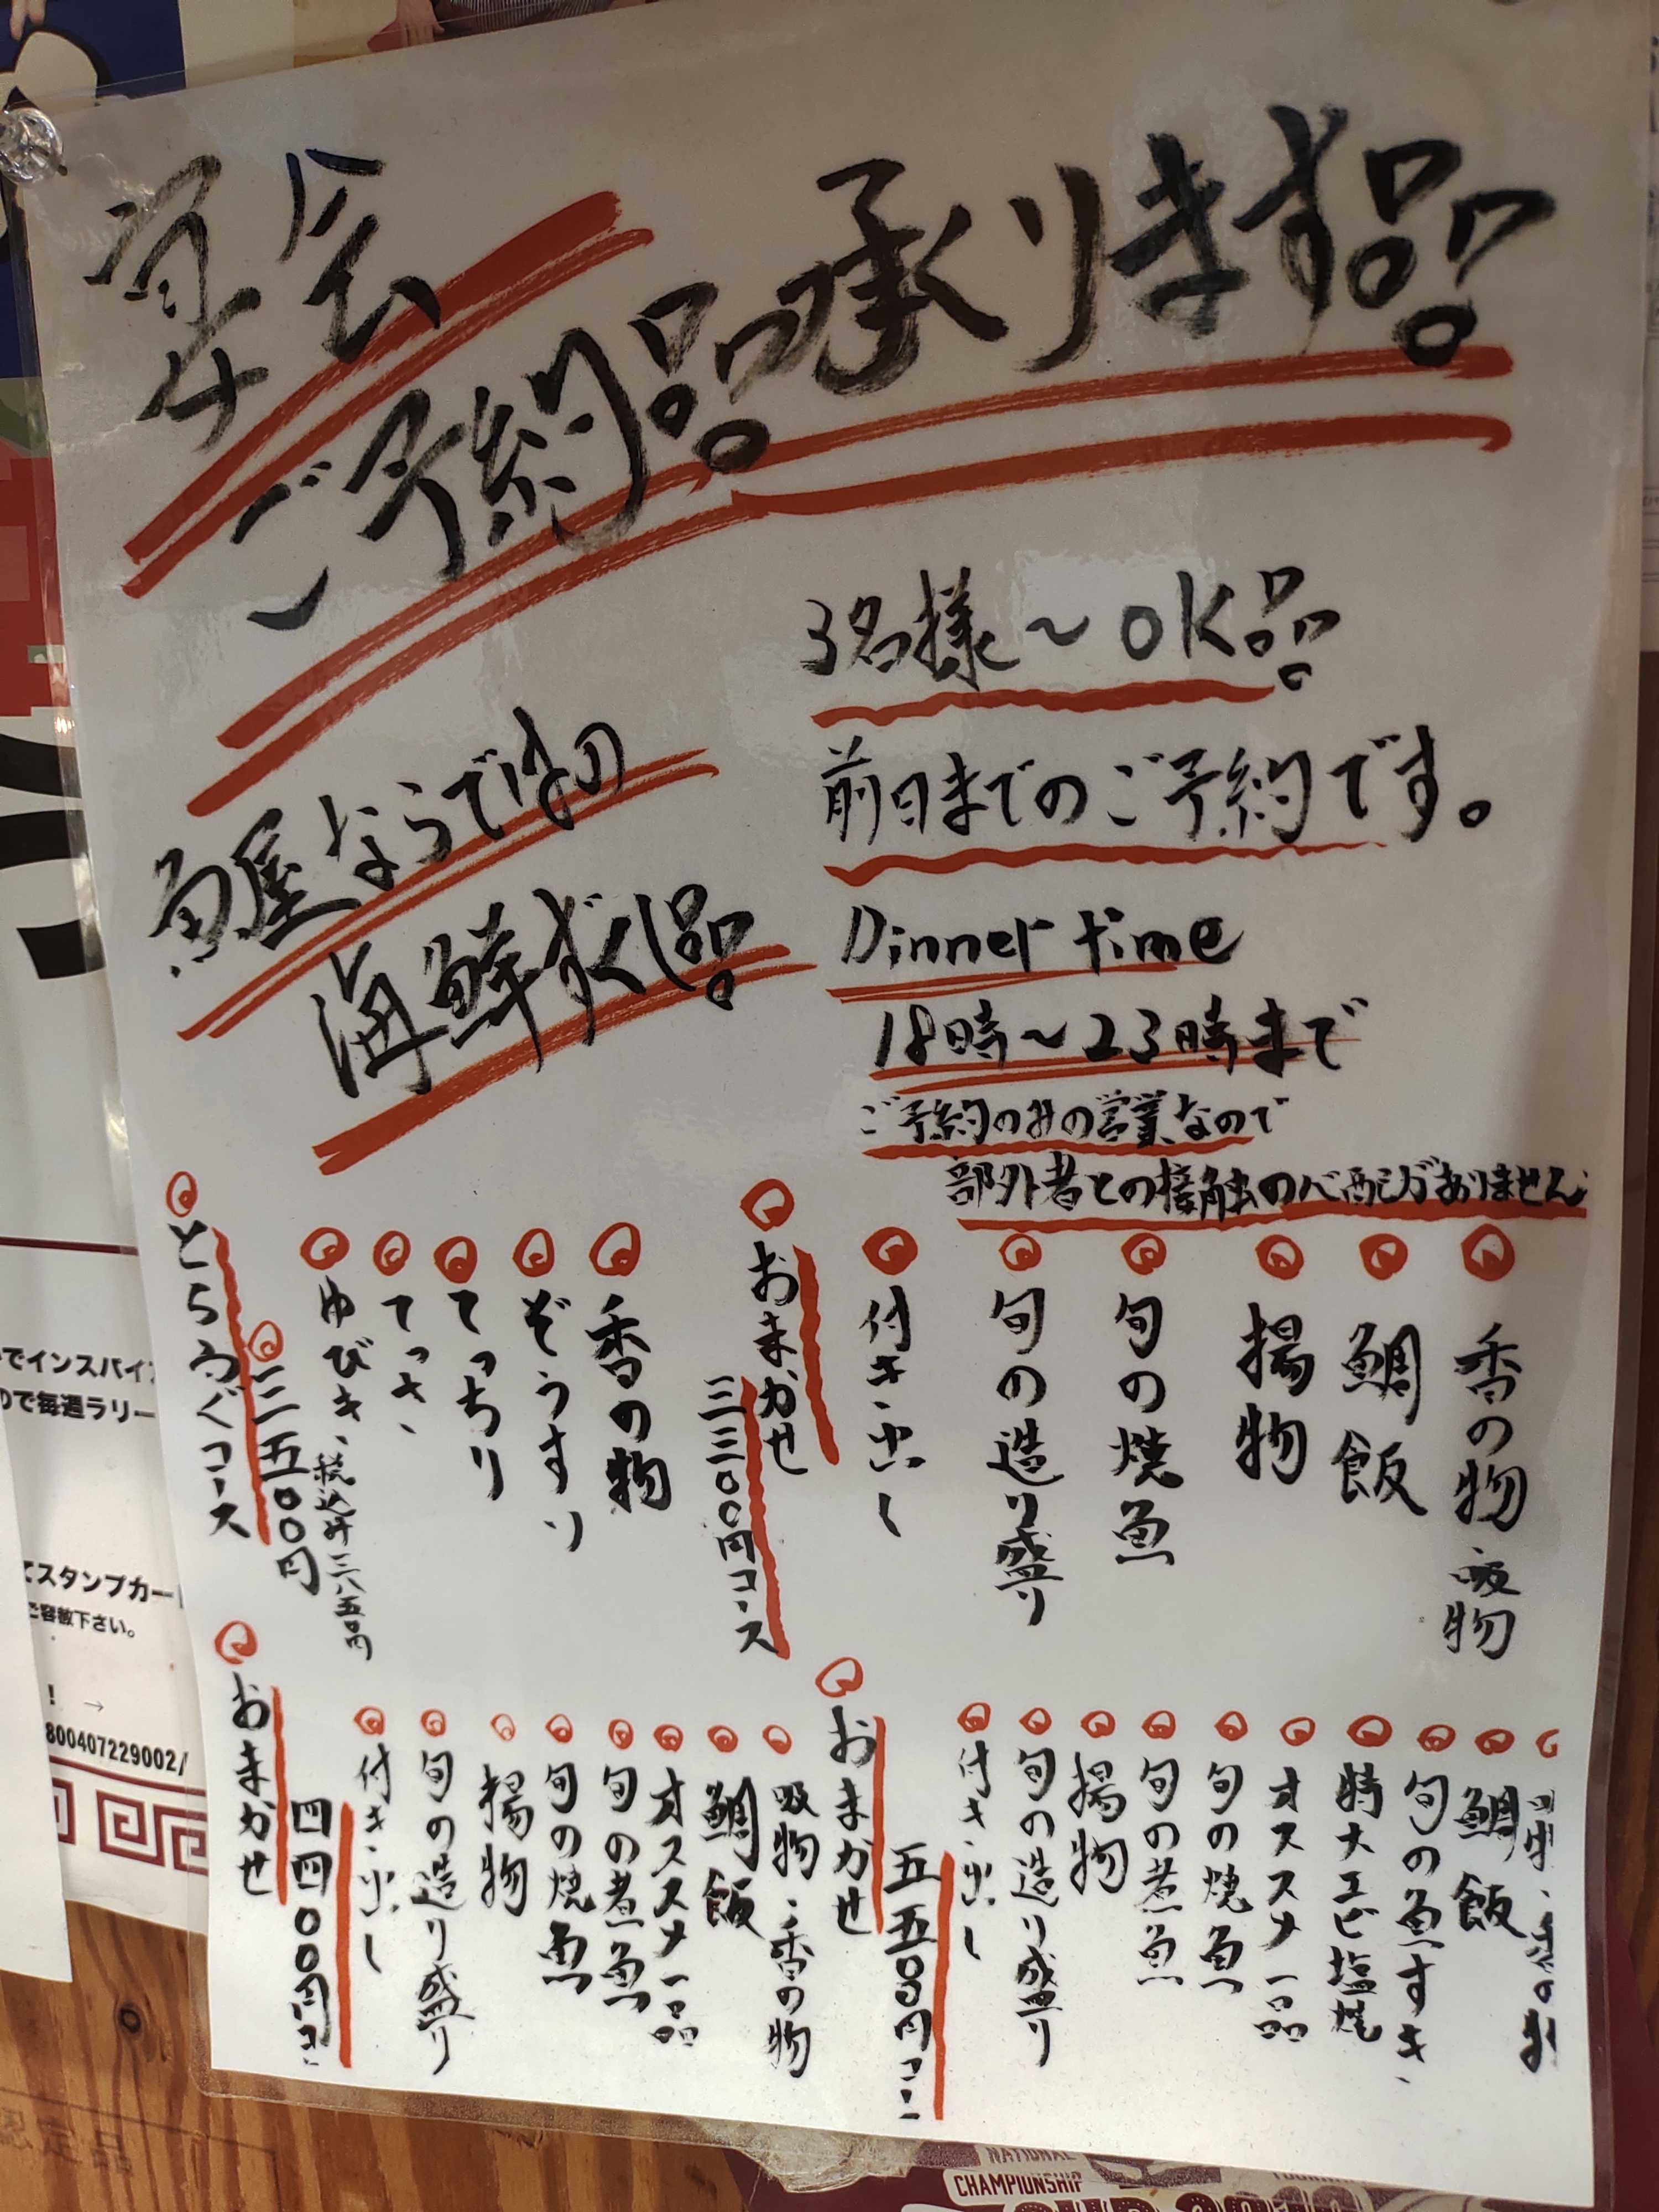 宴会
ご予約!!承ります!!
3名様～OK!!
前日までのご予約です。
魚屋ならではの
海鮮ずくし!!
Dinner time
18時～23時まで
ご予約のみの営業なので
部外者との接触の心配がありません
とらふぐコース
三五00円
ゆびき、
てっさ、
てっちり
ぞうすい
香の物
おまかせ
三三00円コース
付き出し
旬の造り盛り
旬の焼魚
揚物
鯛飯
香の物 吸物
おまかせ
四四00円コース
付き出し
旬の造り盛り
揚物
旬の焼魚
旬の煮魚
オススメ一品
鯛飯
吸物、香の物
おまかせ
五五00円コース
付き出し
旬の造り盛り
揚物
旬の煮魚
旬の焼魚
オススメ一品
特大エビ塩焼
旬の魚すき、
鯛飯
でインスパイ
ので毎週ラリー
てスタンプカー
ご容赦下さい。
! →
800407229002/
NATIONAL
CHAMPIONSHIP